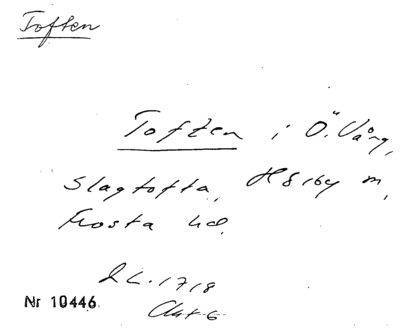 Toften
Toften i Ö. Vång,
Slagtofta, Hörby m,
Frosta hd.
LL. 1718
Akt 6
Nr 10446.